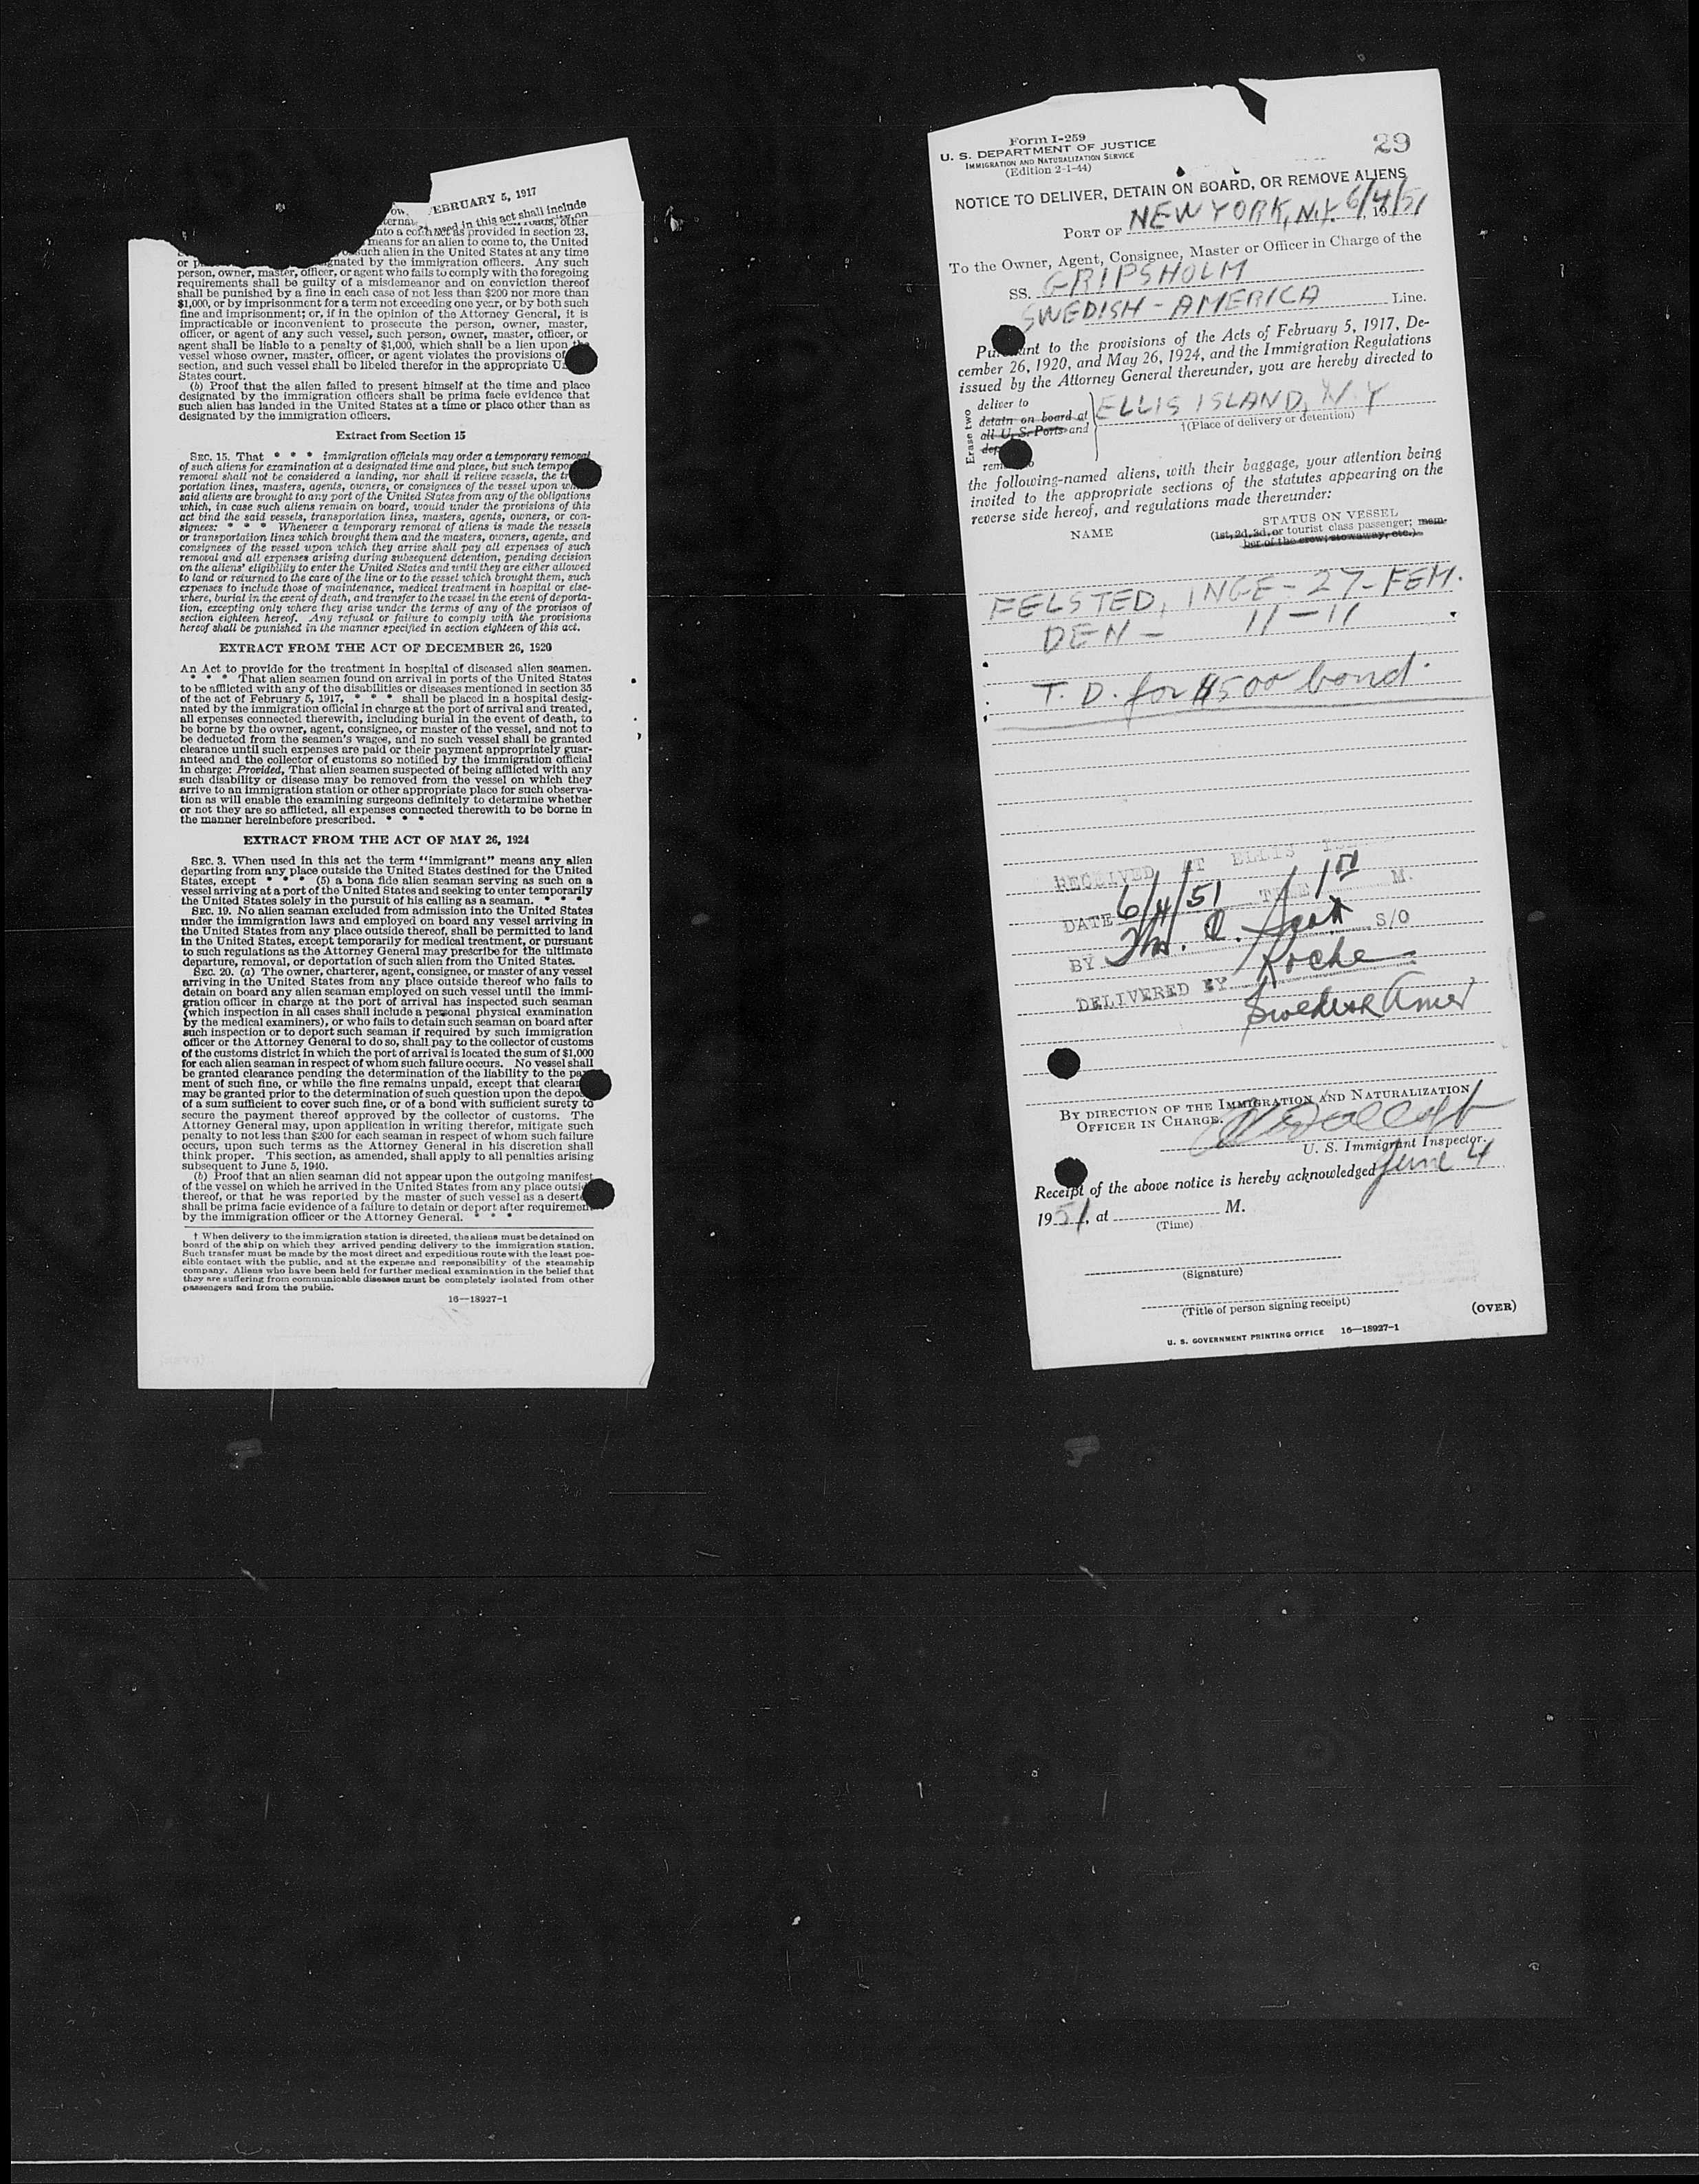 EBRUARY 5, 1917
in this act shall include
as provided in section 23,
means for an alien to come to, the United
such alien in the United States at any time
or gnated by the immigration officers. Any such
person, owner, master, officer, or agent who fails to comply with the foregoing
requirements shall be guilty of a misdemeanor and on conviction thereof
shall be punished by a fine in each case of not less than $200 nor more than
$1,000, or by imprisonment for a term not exceeding one year, or by both such
fine and imprisonment; or, if in the opinion of the Attorney General, it is
impracticable or inconvenient to prosecute the person, owner, master,
officer, or agent of any such vessel, such person, owner, master, officer, or
agent shall be liable to a penalty of $1,000, which shall be a lien upon the
vessel whose owner, master, officer, or agent violates the provisions of
section, and such vessel shall be libeled therefor in the appropriate U
States court.
(b) Proof that the alien failed to present himself at the time and place
designated by the immigration officers shall be prima facie evidence that
such alien has landed in the United States at a time or place other than as
designated by the immigration officers.
Extract from Section 15
SEC. 15. That * * * immigration officials may order a temporary removal
of such aliens for examination at a designated time and place, but such tempo
removal shall not be considered a landing, nor shall it relieve vessels, the tr
portation lines, masters, agents, owners, or consignees of the vessel upon wh
said aliens are brought to any port of the United States from any of the obligations
which, in case such aliens remain on board, would under the provisions of this
act bind the said vessels, transportation lines, masters, agents, owners, or con-
signees: * * * Whenever a temporary removal of aliens is made the vessels
or transportation lines which brought them and the masters, owners, agents, and
consignees of the vessel upon which they arrive shall pay all expenses of such
removal and all expenses arising during subsequent detention, pending decision
on the aliens' eligibility to enter the United States and until they are either allowed
to land or returned to the care of the line or to the vessel which brought them, such
expenses to include those of maintenance, medical treatment in hospital or else-
where, burial in the event of death, and transfer to the vessel in the event of deporta-
tion, excepting only where they arise under the terms of any of the provisos of
section eighteen hereof. Any refusal or failure to comply with the provisions
hereof shall be punished in the manner specified in section eighteen of this act.
EXTRACT FROM THE ACT OF DECEMBER 26, 1920
An Act to provide for the treatment in hospital of diseased alien seamen.
* * * That alien seamen found on arrival in ports of the United States
to be afflicted with any of the disabilities or diseases mentioned in section 35
of the act of February 5, 1917, * * * shall be placed in a hospital desig-
nated by the immigration official in charge at the port of arrival and treated,
all expenses connected therewith, including burial in the event of death, to
be borne by the owner, agent, consignee, or master of the vessel, and not to
be deducted from the seamen's wages, and no such vessel shall be granted
clearance until such expenses are paid or their payment appropriately guar-
anteed and the collector of customs so notified by the immigration official
in charge: Provided, That alien seamen suspected of being afflicted with any
such disability or disease may be removed from the vessel on which they
arrive to an immigration station or other appropriate place for such observa-
tion as will enable the examining surgeons definitely to determine whether
or not they are so afflicted, all expenses connected therewith to be borne in
the manner hereinbefore prescribed. * * *
EXTRACT FROM THE ACT OF MAY 26, 1924
SEC. 3. When used in this act the term "immigrant" means any alien
departing from any place outside the United States destined for the United
States, except * * * (5) a bona fide alien seaman serving as such on a
vessel arriving at a port of the United States and seeking to enter temporarily
the United States solely in the pursuit of his calling as a seaman. * * *
SEC. 19. No alien seaman excluded from admission into the United States
under the immigration laws and employed on board any vessel arriving in
the United States from any place outside thereof, shall be permitted to land
in the United States, except temporarily for medical treatment, or pursuant
to such regulations as the Attorney General may prescribe for the ultimate
departure, removal, or deportation of such alien from the United States.
SEC. 20. (a) The owner, charterer, agent, consignee, or master of any vessel
arriving in the United States from any place outside thereof who fails to
detain on board any alien seaman employed on such vessel until the immi-
gration officer in charge at the port of arrival has inspected such seaman
(which inspection in all cases shall include a personal physical examination
by the medical examiners), or who fails to detain such seaman on board after
such inspection or to deport such seaman if required by such immigration
officer or the Attorney General to do so, shall pay to the collector of customs
of the customs district in which the port of arrival is located the sum of $1,000
for each alien seaman in respect of whom such failure occurs. No vessel shall
be granted clearance pending the determination of the liability to the pay
ment of such fine, or while the fine remains unpaid, except that clearan
may be granted prior to the determination of such question upon the depos
of a sum sufficient to cover such fine, or of a bond with sufficient surety to
secure the payment thereof approved by the collector of customs. The
Attorney General may, upon application in writing therefor, mitigate such
penalty to not less than $200 for each seaman in respect of whom such failure
occurs, upon such terms as the Attorney General in his discretion shall
think proper. This section, as amended, shall apply to all penalties arising
subsequent to June 5, 1940.
(b) Proof that an alien seaman did not appear upon the outgoing manifest
of the vessel on which he arrived in the United States from any place outside
thereof, or that he was reported by the master of such vessel as a deserte
shall be prima facie evidence of a failure to detain or deport after requirement
by the immigration officer or the Attorney General. * * *
† When delivery to the immigration station is directed, the aliens must be detained on
board of the ship on which they arrived pending delivery to the immigration station.
Such transfer must be made by the most direct and expeditious route with the least pos-
sible contact with the public, and at the expense and responsibility of the steamship
company. Aliens who have been held for further medical examination in the belief that
they are suffering from communicable diseases must be completely isolated from other
passengers and from the public.
16—18927-1
Form I-259
U. S. DEPARTMENT OF JUSTICE
IMMIGRATION AND NATURALIZATION SERVICE
(Edition 2-1-44)
29
NOTICE TO DELIVER, DETAIN ON BOARD, OR REMOVE ALIENS
PORT OF NEW YORK, N.Y. 6/4/51
To the Owner, Agent, Consignee, Master or Officer in Charge of the
SS. GRIPSHOLM
SWEDISH-AMERICA Line.
Pursuant to the provisions of the Acts of February 5, 1917, De-
cember 26, 1920, and May 26, 1924, and the Immigration Regulations
issued by the Attorney General thereunder, you are hereby directed to
Erase two
deliver to
detain on board at
all U. S. Ports and
remove to
ELLIS ISLAND, N.Y
†(Place of delivery or detention)
the following-named aliens, with their baggage, your attention being
invited to the appropriate sections of the statutes appearing on the
reverse side hereof, and regulations made thereunder:
NAME
STATUS ON VESSEL
(1st, 2d, 3d, or tourist class passenger; mem-
ber of the crew; stowaway, etc.)
FELSTED, INGE-27-FEM.
DEN - 11-11
T. D. for $500 bond.
RECEIVED AT ELLIS
DATE 6/4/51 TIME 1 M.
BY S/O
DELIVERED BY Roche
Swedish Amer
BY DIRECTION OF THE IMMIGRATION AND NATURALIZATION
OFFICER IN CHARGE.
U. S. Immigrant Inspector.
Receipt of the above notice is hereby acknowledged June 4
1951, at M.
(Time)
(Signature)
(Title of person signing receipt)
(OVER)
U. S. GOVERNMENT PRINTING OFFICE 16—18927-1